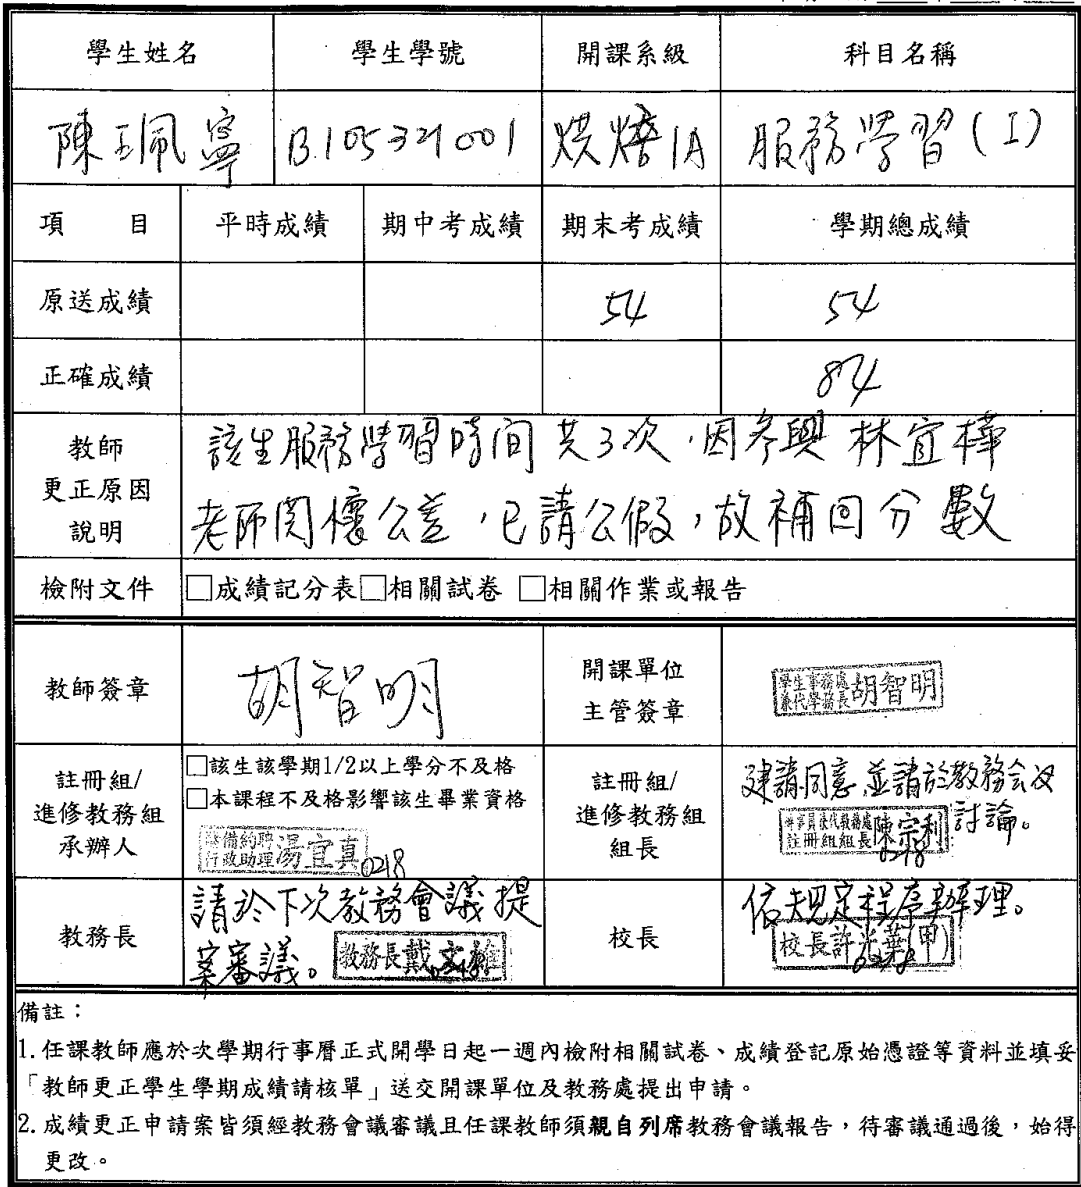 學生姓名 學生學號 開課系級 科目名稱
陳珮寧 B10531001 烘焙1A 服務學習(I)
項目 平時成績 期中考成績 期末考成績 學期總成績
原送成績 54 54
正確成績 84
教師更正原因說明
該生服務學習時间共3次,因參與林宜樺
老師関懷公差,已請公假,故補回分數
檢附文件 □成績記分表□相關試卷 □相關作業或報告
教師簽章 胡智明
開課單位主管簽章 學生事務處兼代學務長胡智明
註冊組/進修教務組承辦人
□該生該學期1/2以上學分不及格
□本課程不及格影響該生畢業資格
行政助理湯宜真 0218
註冊組/進修教務組組長
建請同意,並請於教務会议
討論。
註冊組組長陳宗利 0218
教務長
請於下次教務會議提
案審議。教務長戴文雄
校長
依規定程序辦理。
校長許光華(甲)
備註:
1.任課教師應於次學期行事曆正式開學日起一週內檢附相關試卷、成績登記原始憑證等資料並填妥
「教師更正學生學期成績請核單」送交開課單位及教務處提出申請。
2.成績更正申請案皆須經教務會議審議且任課教師須親自列席教務會議報告,待審議通過後,始得
更改。